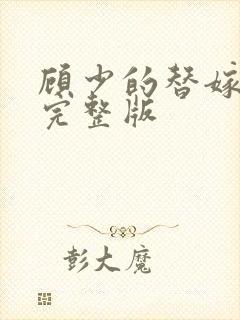 顾少的替嫁
完整版
彭大魔